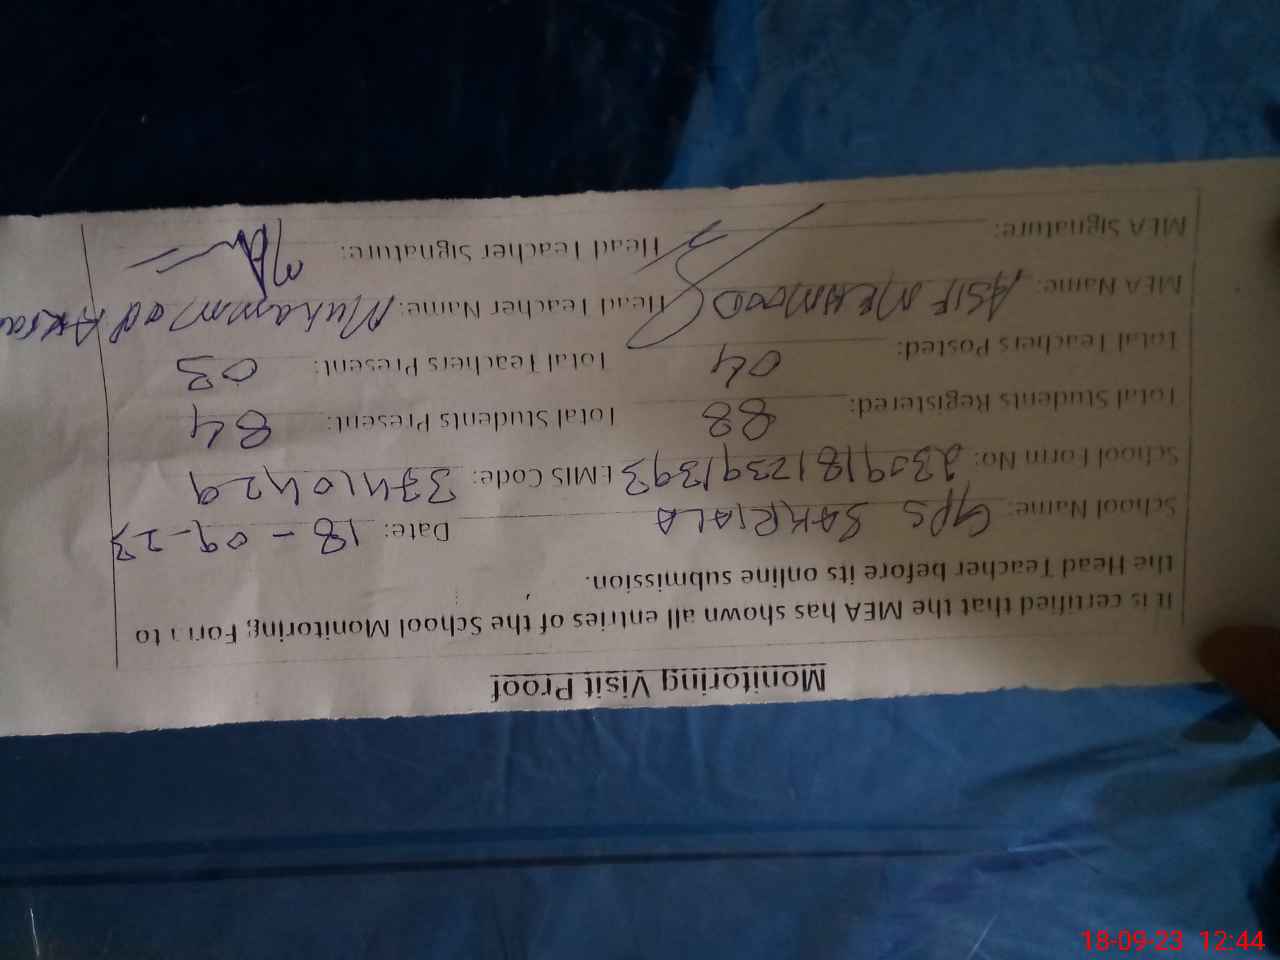 Monitoring Visit Proof
It is certified that the MEA has shown all entries of the School Monitoring Form to
the Head Teacher before its online submission.
School Name: GPS SAKRIALA Date: 18-09-23
School Form No: 23091812391393 EMIS Code: 37410429
Total Students Registered: 88 Total Students Present: 84
Total Teachers Posted: 04 Total Teachers Present: 03
MEA Name: ASIF MEHMOOD Head Teacher Name: Muhammad
MEA Signature: Head Teacher Signature:
18-09-23 12:44